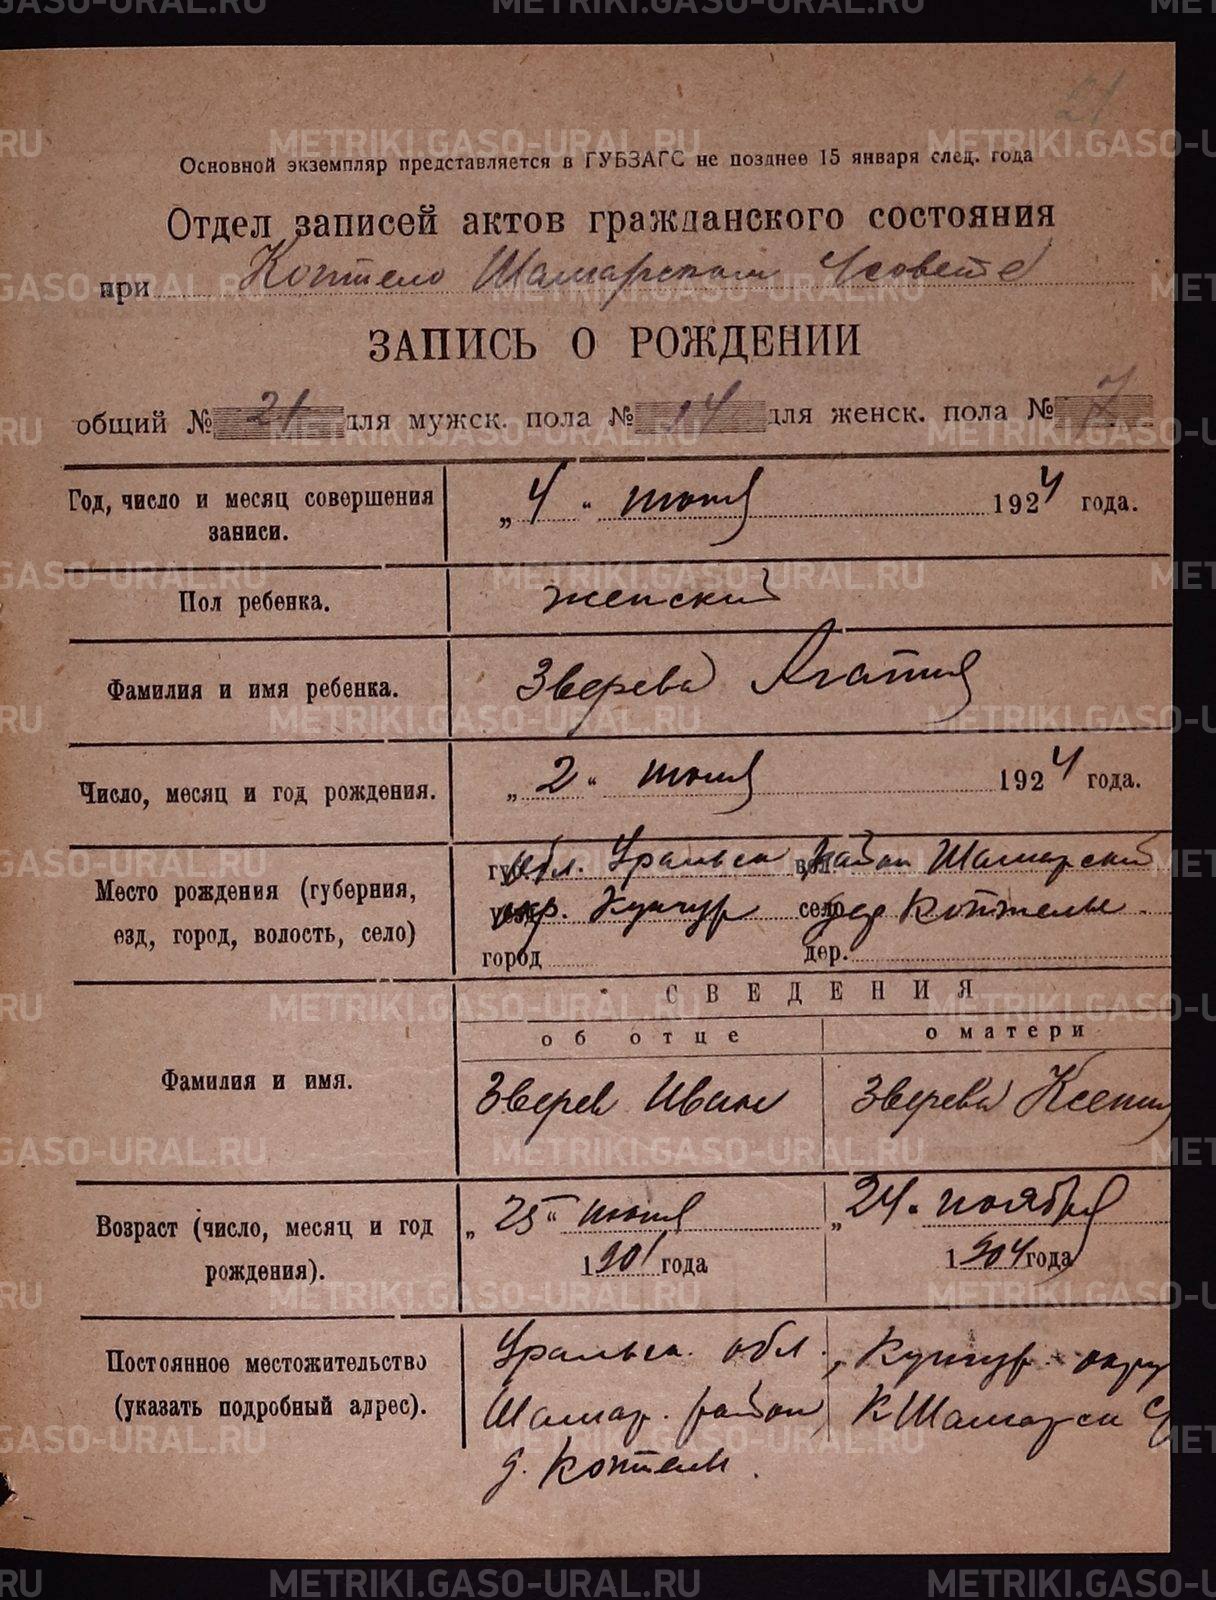 21
Основной экземпляр представляется в ГУБЗАГС не позднее 15 января след. года
Отдел записей актов гражданского состояния
при Коптело Шамарском с/совете
ЗАПИСЬ О РОЖДЕНИИ
общий № 21 для мужск. пола № 14 для женск. пола № 7
Год, число и месяц совершения записи. „4“ июня 1924 года.
Пол ребенка. женский
Фамилия и имя ребенка. Зверева Агапия
Число, месяц и год рождения. „2“ июня 1924 года.
Место рождения (губерния, обл. Уральск район Шамарский
езд, город, волость, село) окр. Кунгур село дер Коптелы.
город дер.
СВЕДЕНИЯ
об отце о матери
Фамилия и имя. Зверев Иван Зверева Ксения
Возраст (число, месяц и год „25“ июня „24“ ноября
рождения). 1901 года 1904 года
Постоянное местожительство Уральск. обл., Кунгур. округ
(указать подробный адрес). Шамар. район К Шамарск с
д. Коптелы.
METRIKI.GASO-URAL.RU